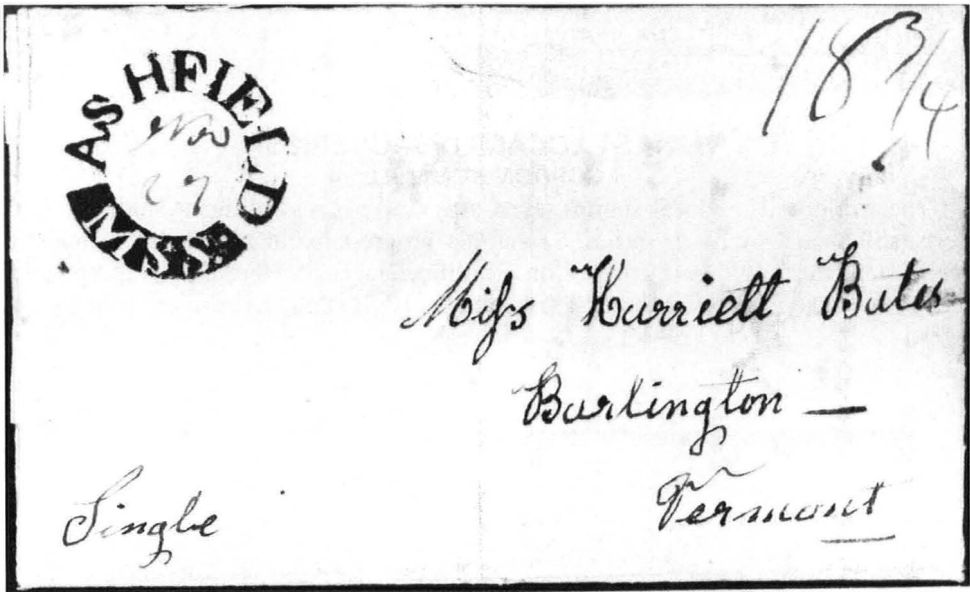 ASHFIELD
MSS.
Nov
27
18 3/4
Miss Harriett Bates
Burlington —
Vermont
Single